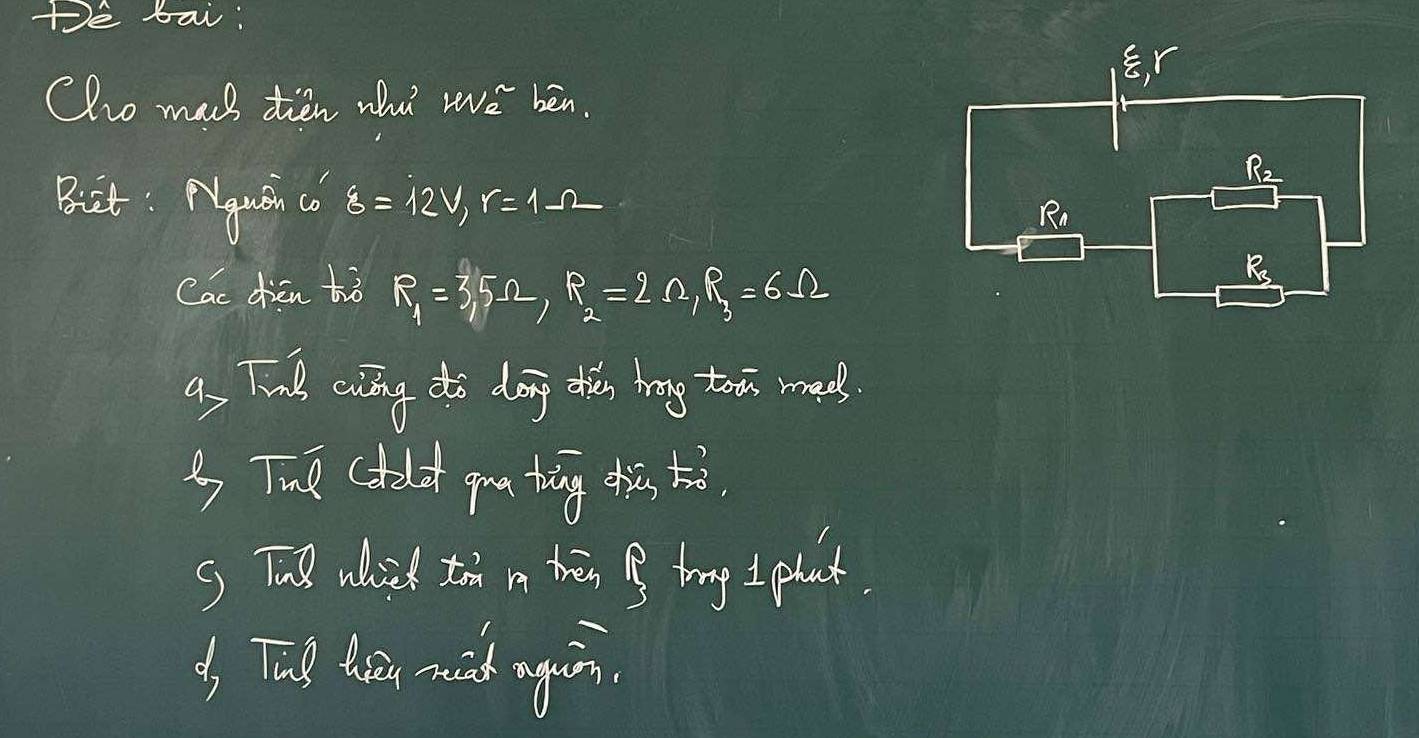 Đề bài:
Cho mạch điện như hvẽ bên.
Biết: Nguồn có ξ = 12V, r = 1Ω
Các điện trở R₁ = 3,5Ω, R₂ = 2Ω, R₃ = 6Ω
a, Tính cường độ dòng điện trong toàn mạch.
b, Tính Cđdđ qua từng điện trở.
c, Tính nhiệt tỏa ra trên R₃ trong 1 phút.
d, Tính hiệu suất nguồn.
ξ, r
R₂
R₁
R₃